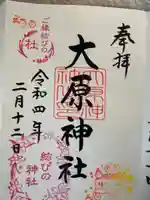 奉拝
大原神社
令和四年
二月十二日
ご縁結びの
社
結びの
神社